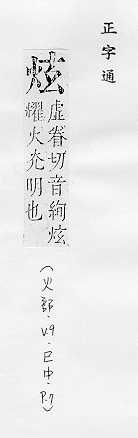 正字通
炫
虛眷切音絢炫
耀火光明也
(火部．V.9．巳中．P.7)